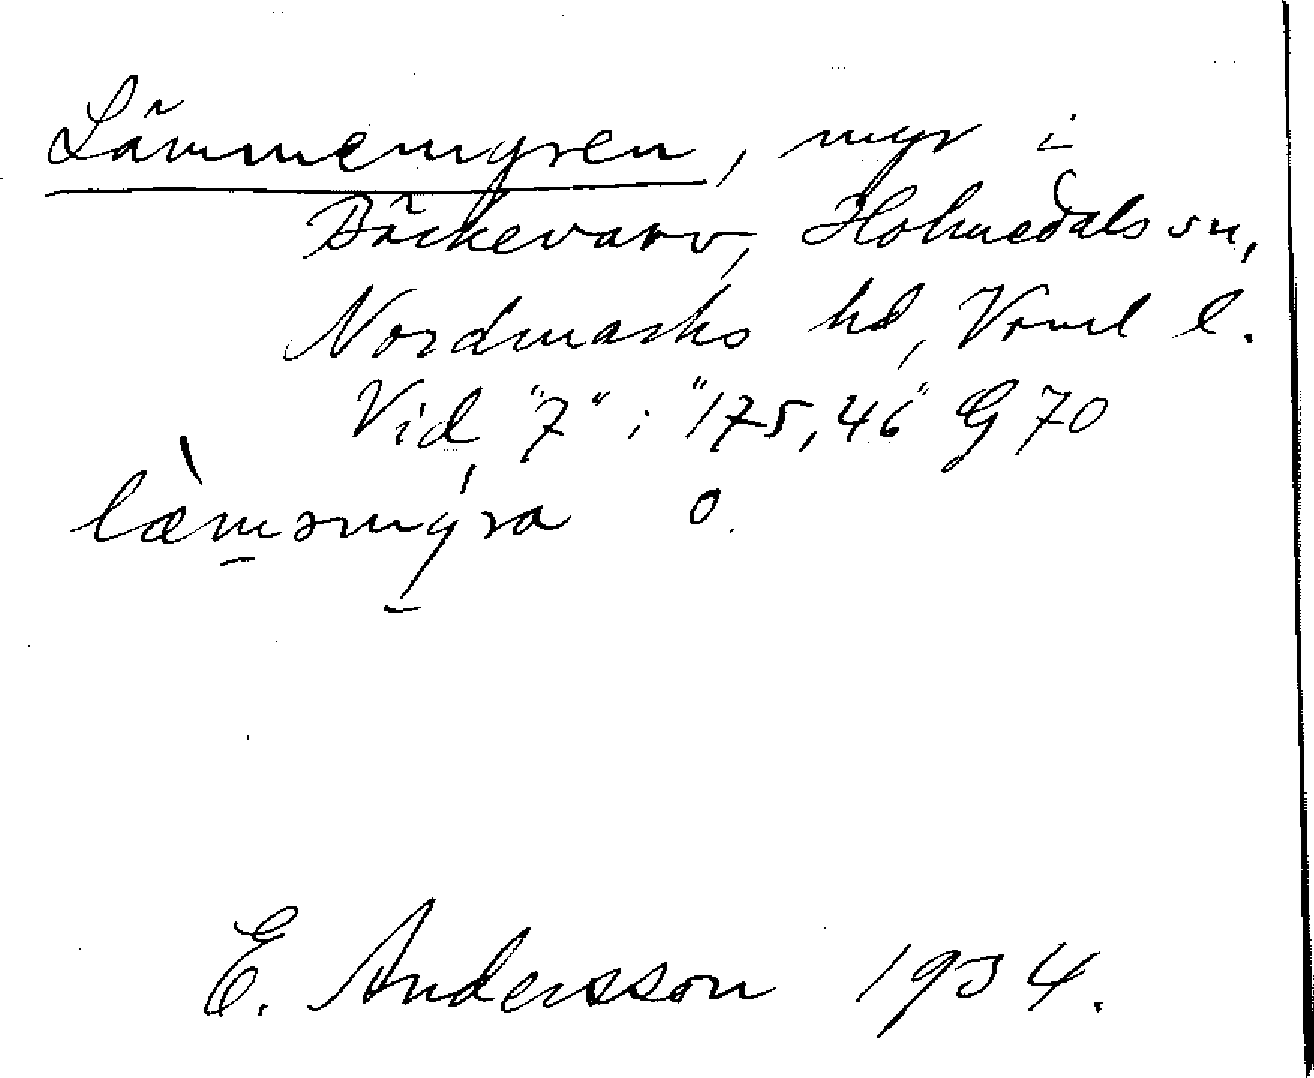 Lämmemyren, myr i
Bäckevarv, Holmedals sn,
Nordmarks hd, Värml l.
Vid "7" i "175,46" G 70
læ̀mǝmy̆ra o.
E. Andersson 1934.